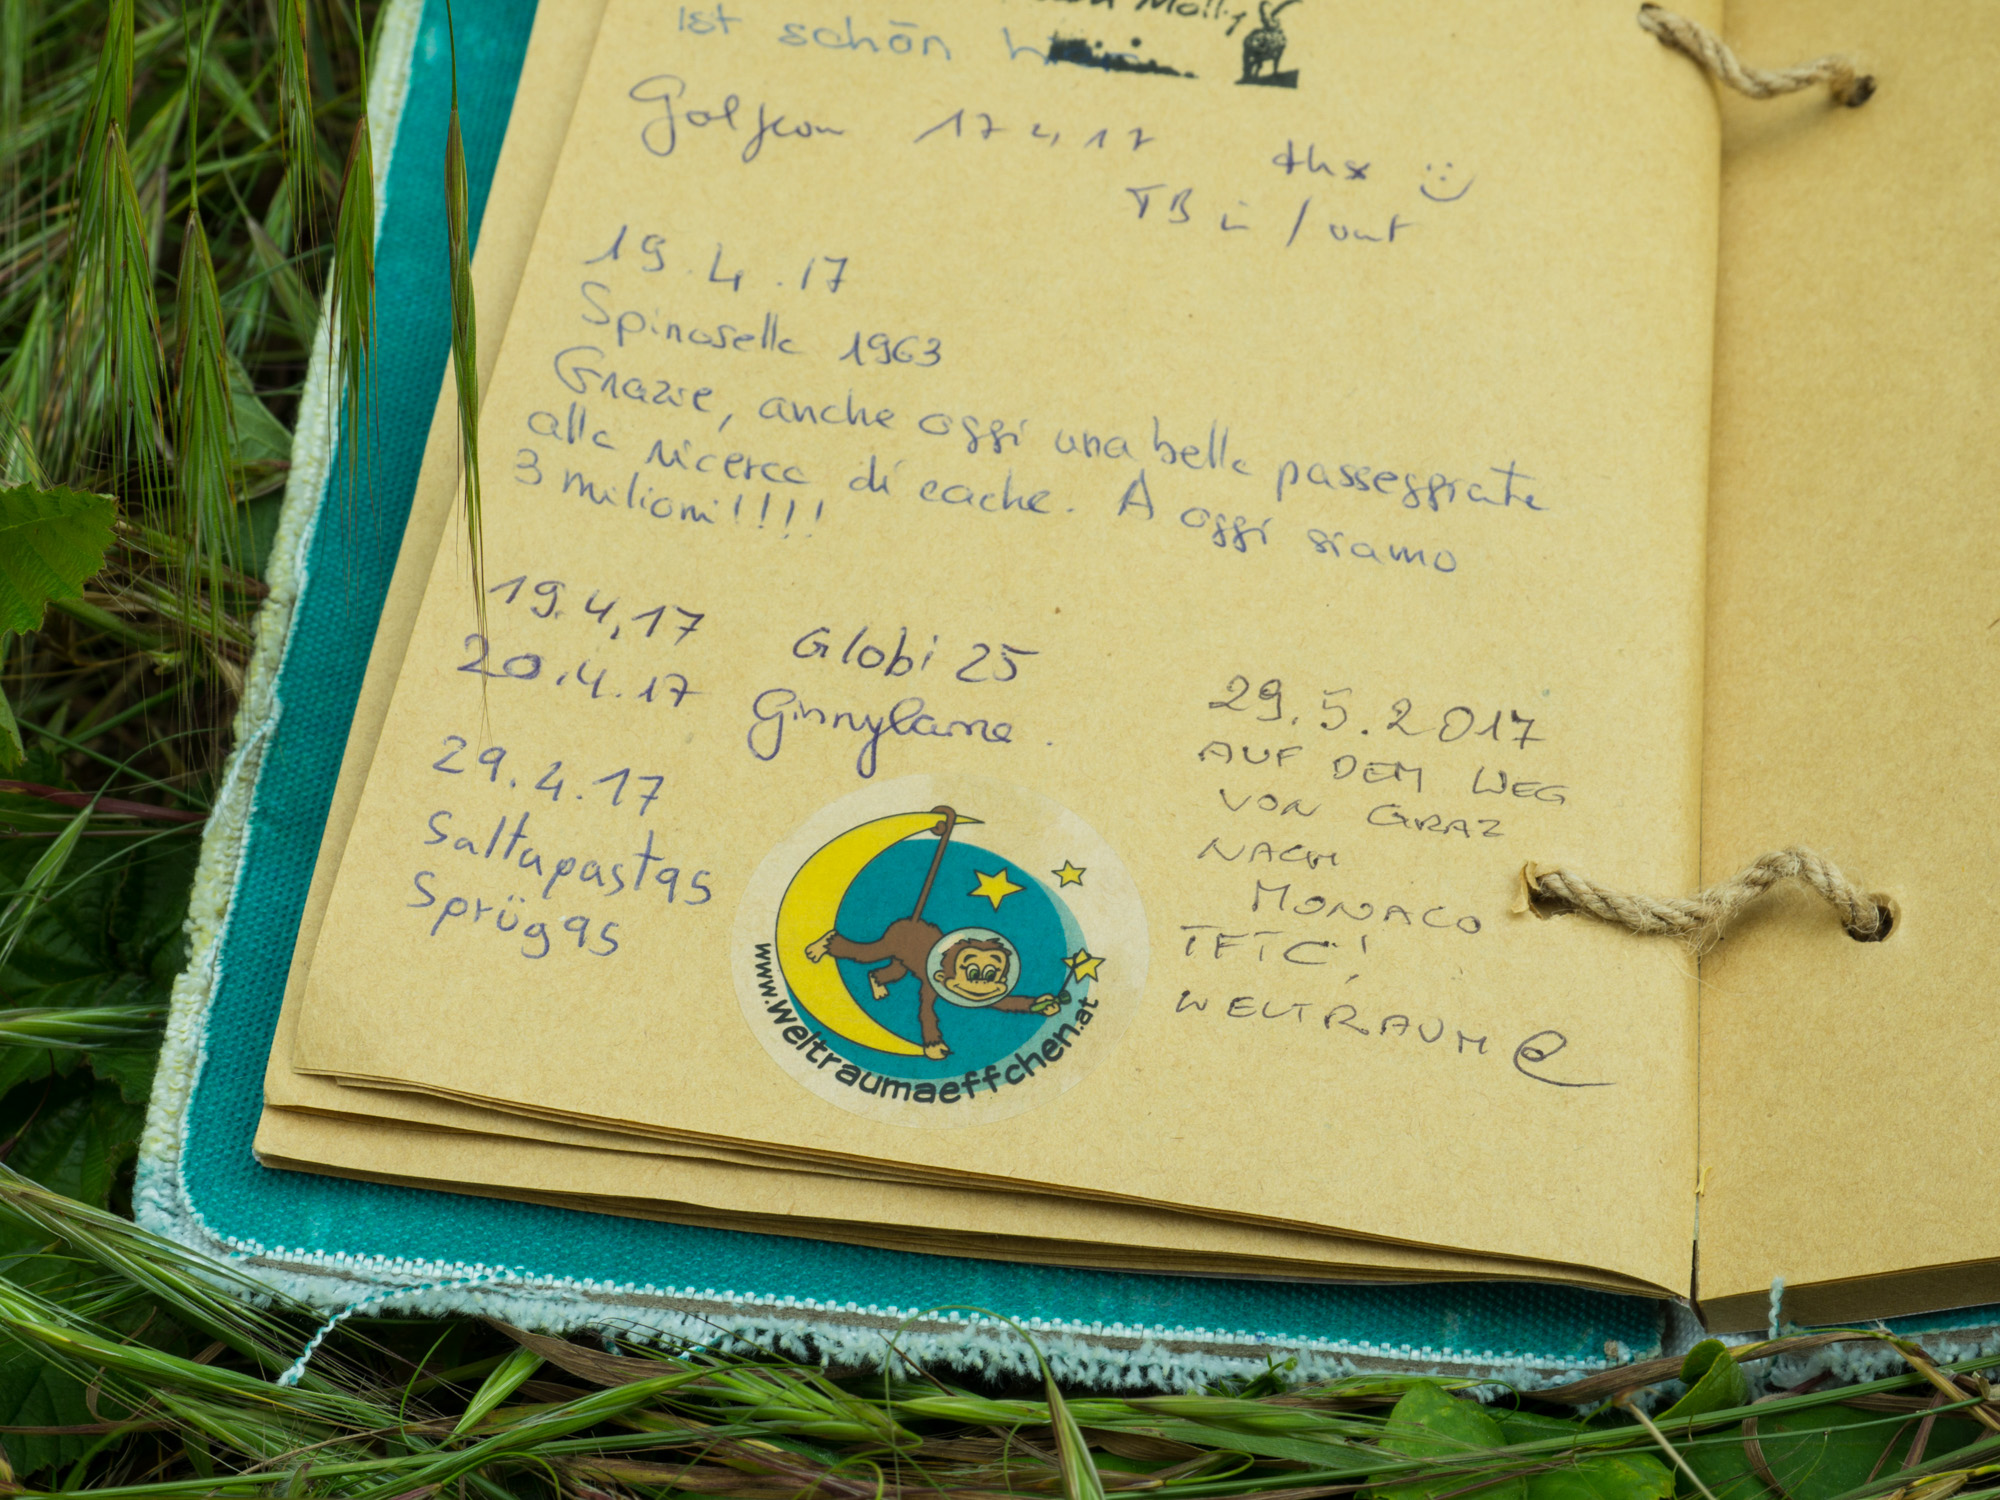 Molly
ist schön
Golfeon 17.4.17
thx :)
TB in / out
19.4.17
Spinosella 1963
Grazie, anche oggi una bella passeggiata
alla ricerca di cache. A oggi siamo
3 milioni!!!!
19.4.17 Globi 25
20.4.17
29.4.17
Saltapastqs
Sprügqs
29.5.2017
AUF DEM WEG
VON GRAZ
NACH
MONACO
TFTC!
WELTRAUM @
www.weltraumaeffchen.at